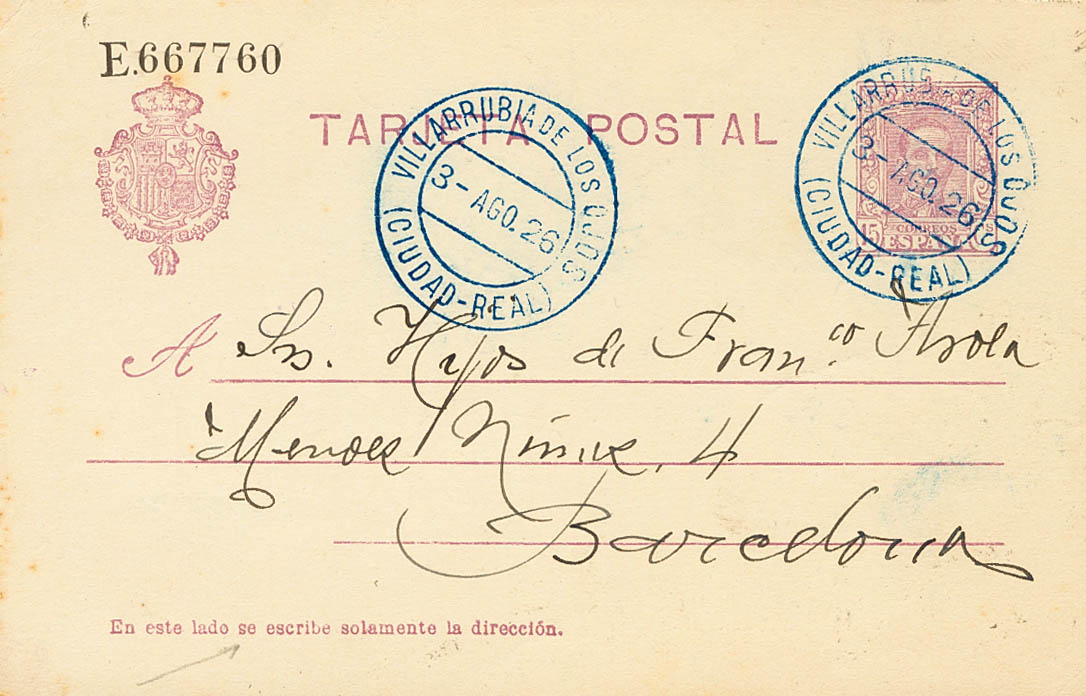 E.667760
TARJETA POSTAL
VILLARRUBIA DE LOS OJOS
3-AGO.26
(CIUDAD-REAL)
VILLARRUBIA DE LOS OJOS
3-AGO.26
(CIUDAD-REAL)
CORREOS
15 ESPAÑA
A Srs. Hijos de Fran.co Arola
Mendez Núñez, 4
Barcelona
En este lado se escribe solamente la dirección.